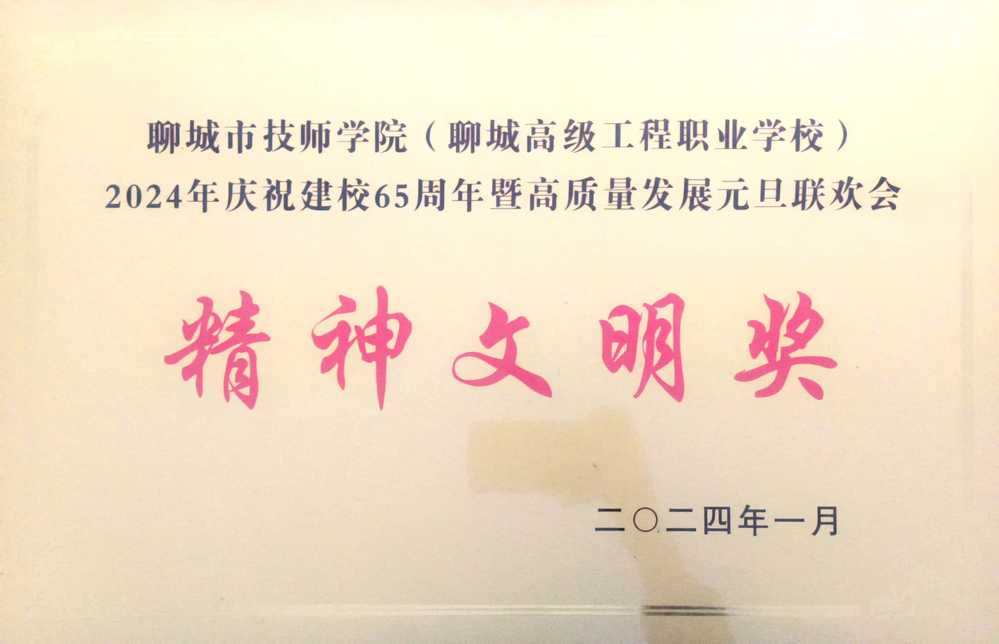 聊城市技师学院（聊城高级工程职业学校）
2024年庆祝建校65周年暨高质量发展元旦联欢会
精神文明奖
二〇二四年一月